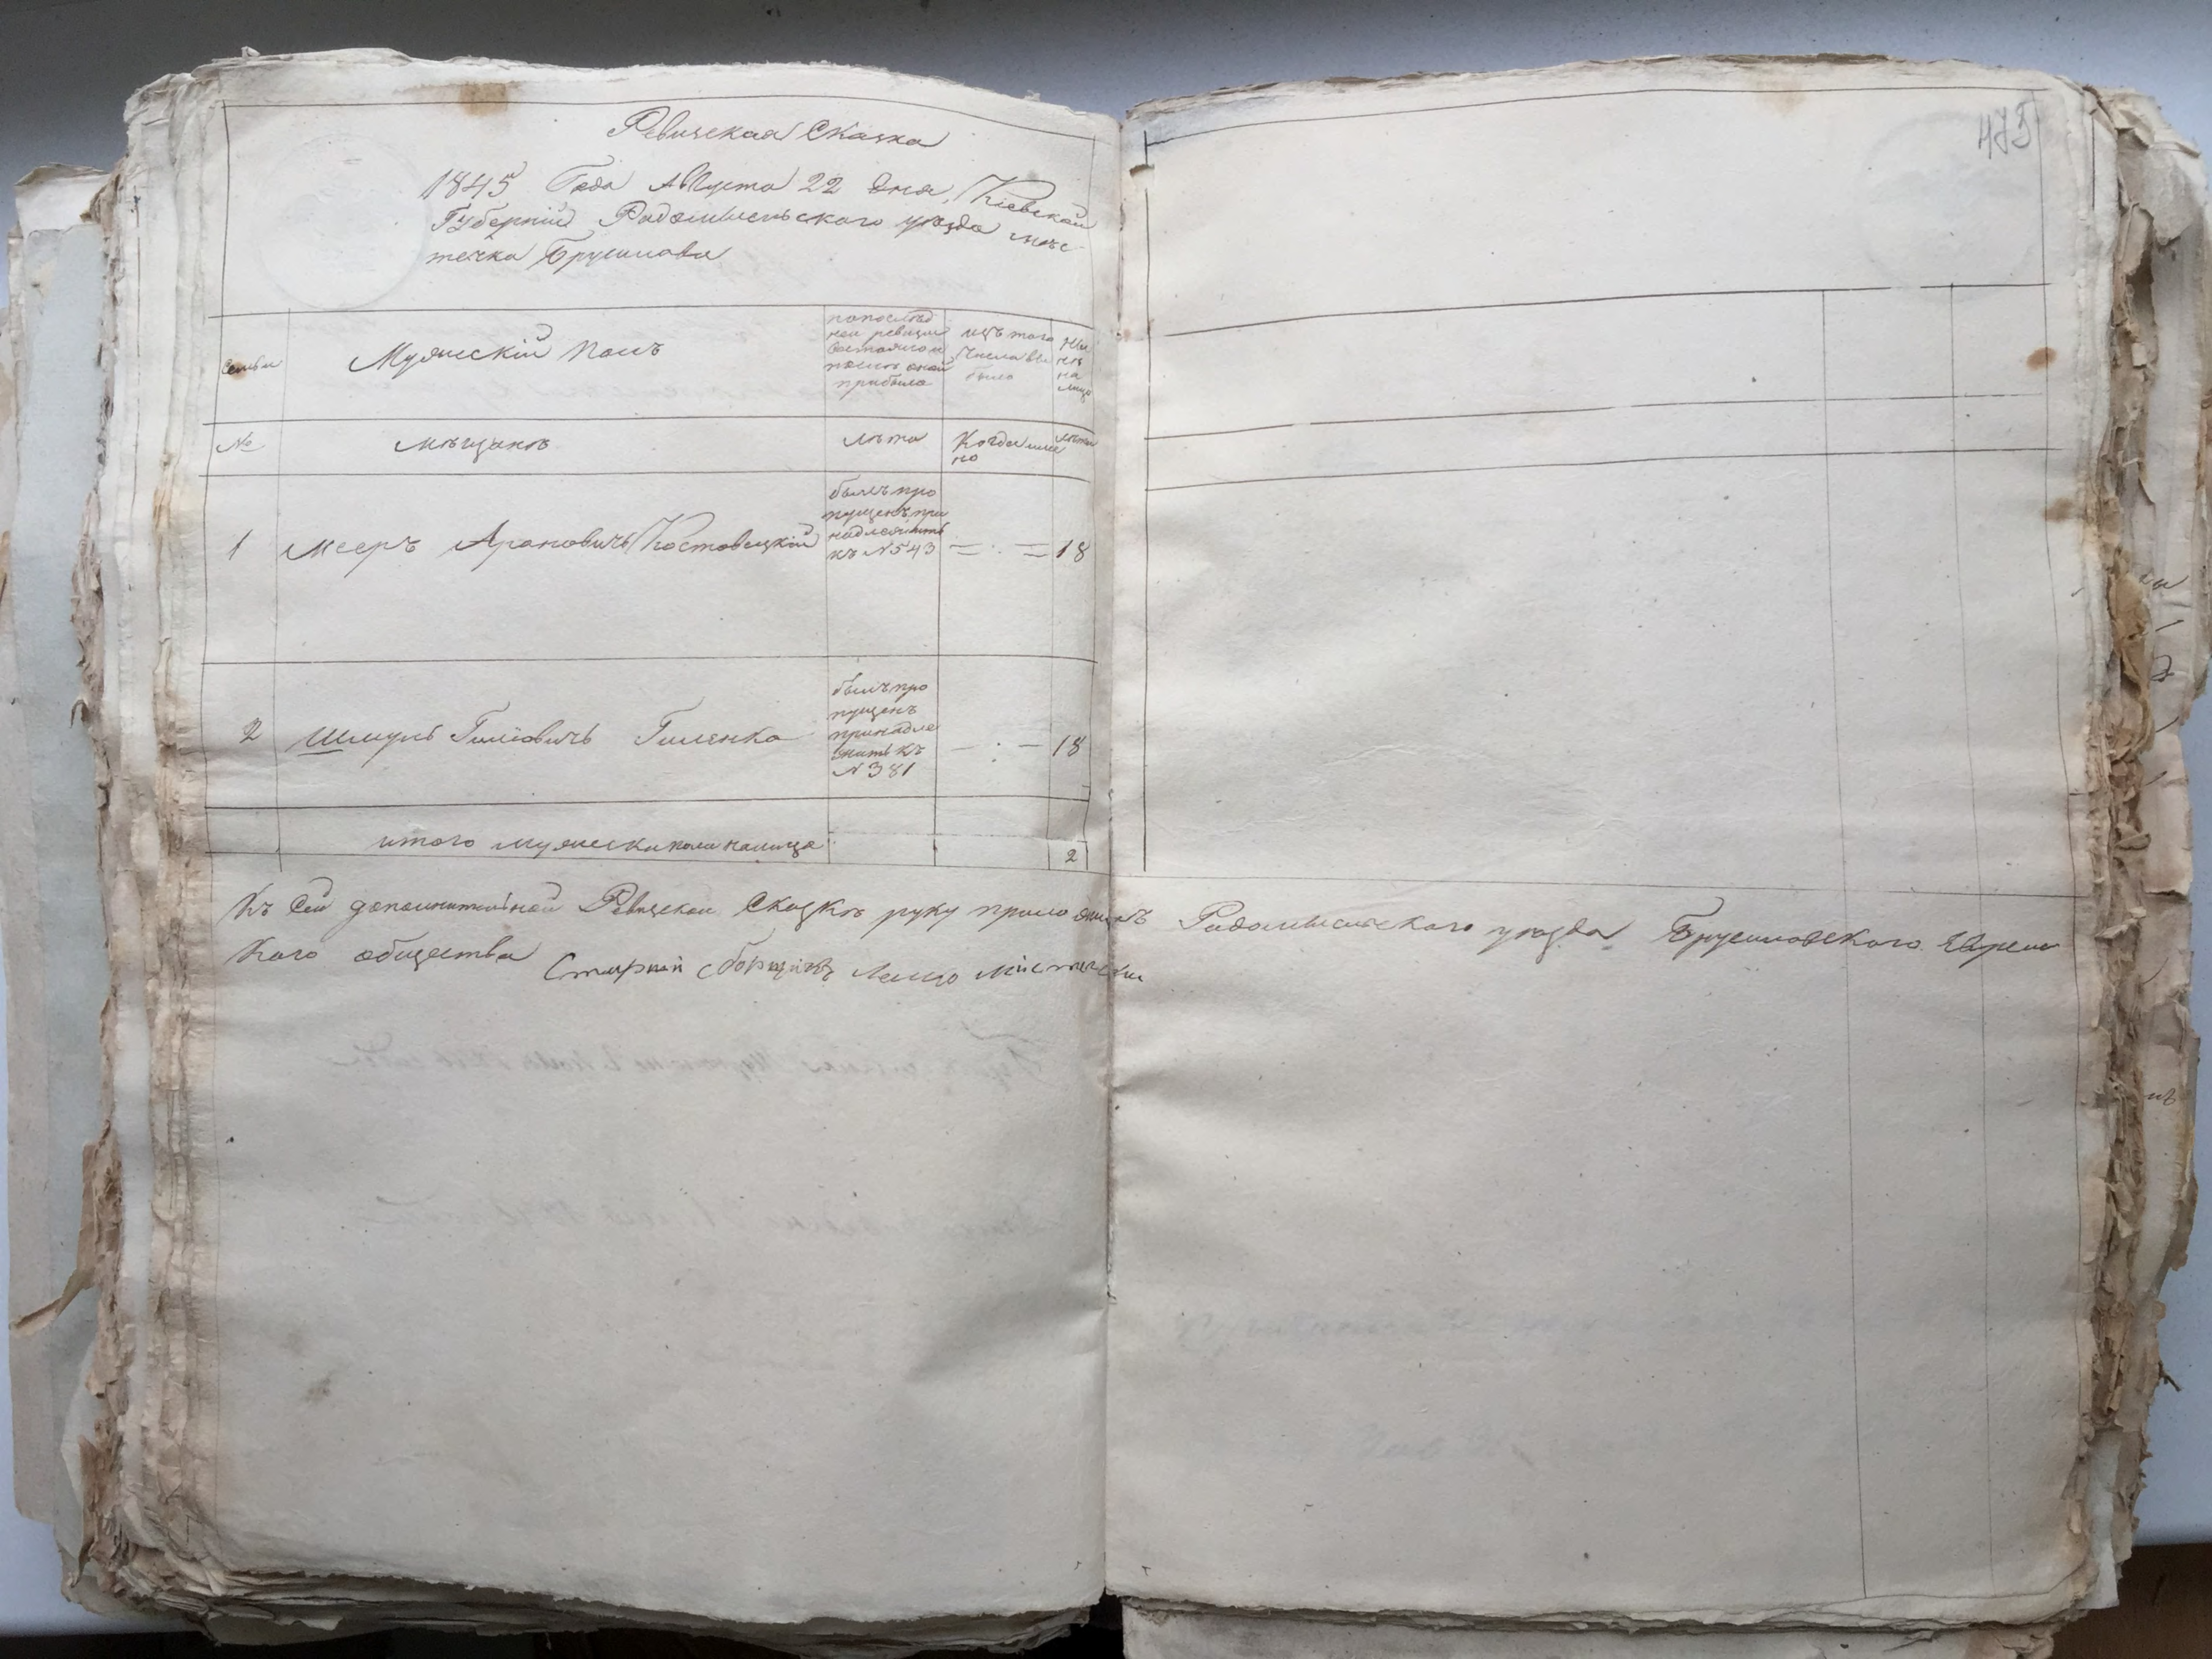 473
Ревизская Сказка
1845 Года Августа 22 дня, Кіевской
Губерніи Радомысльского уѣзда мѣс-
течка Брусилова
Семьи
Мужескій полъ
попослѣд
ней ревизіи
состояло и
послѣ оной
прибыло
изъ того
числа вы
было
Ны
нѣ
на
лицо
№
мѣщанъ
лѣта
Когда име
но
лѣта
1
Мееръ Ароновичъ Костовецкій
былъ про
пущенъ при
надлежитъ
къ № 543
18
2
Шмуль Гиліовичъ Гиленко
былъ про
пущенъ
принадле
житъ къ
№ 381
18
итого мужеска пола налицо
2
Къ сей дополнительной Ревизской Сказкѣ руку приложилъ Радомысльского уѣзда Брусиловского Еврейс
кого общества
Старшій сборщикъ